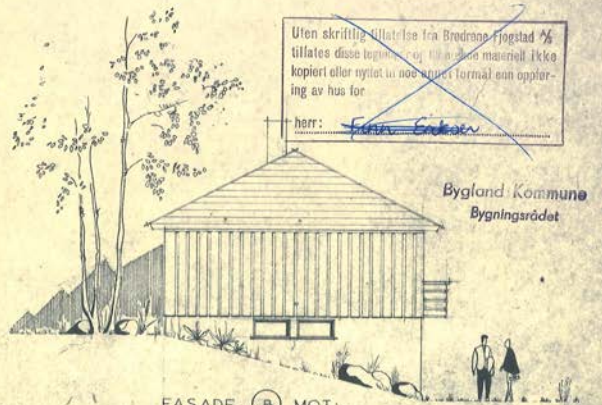 Uten skriftlig tillatelse fra Brødrene Fjogstad A/S
tillates disse og materiell ikke
kopiert eller nyttet til noe annet formål enn oppfør-
ing av hus for
herr:
Bygland Kommune
Bygningsrådet
FASADE B MOT: